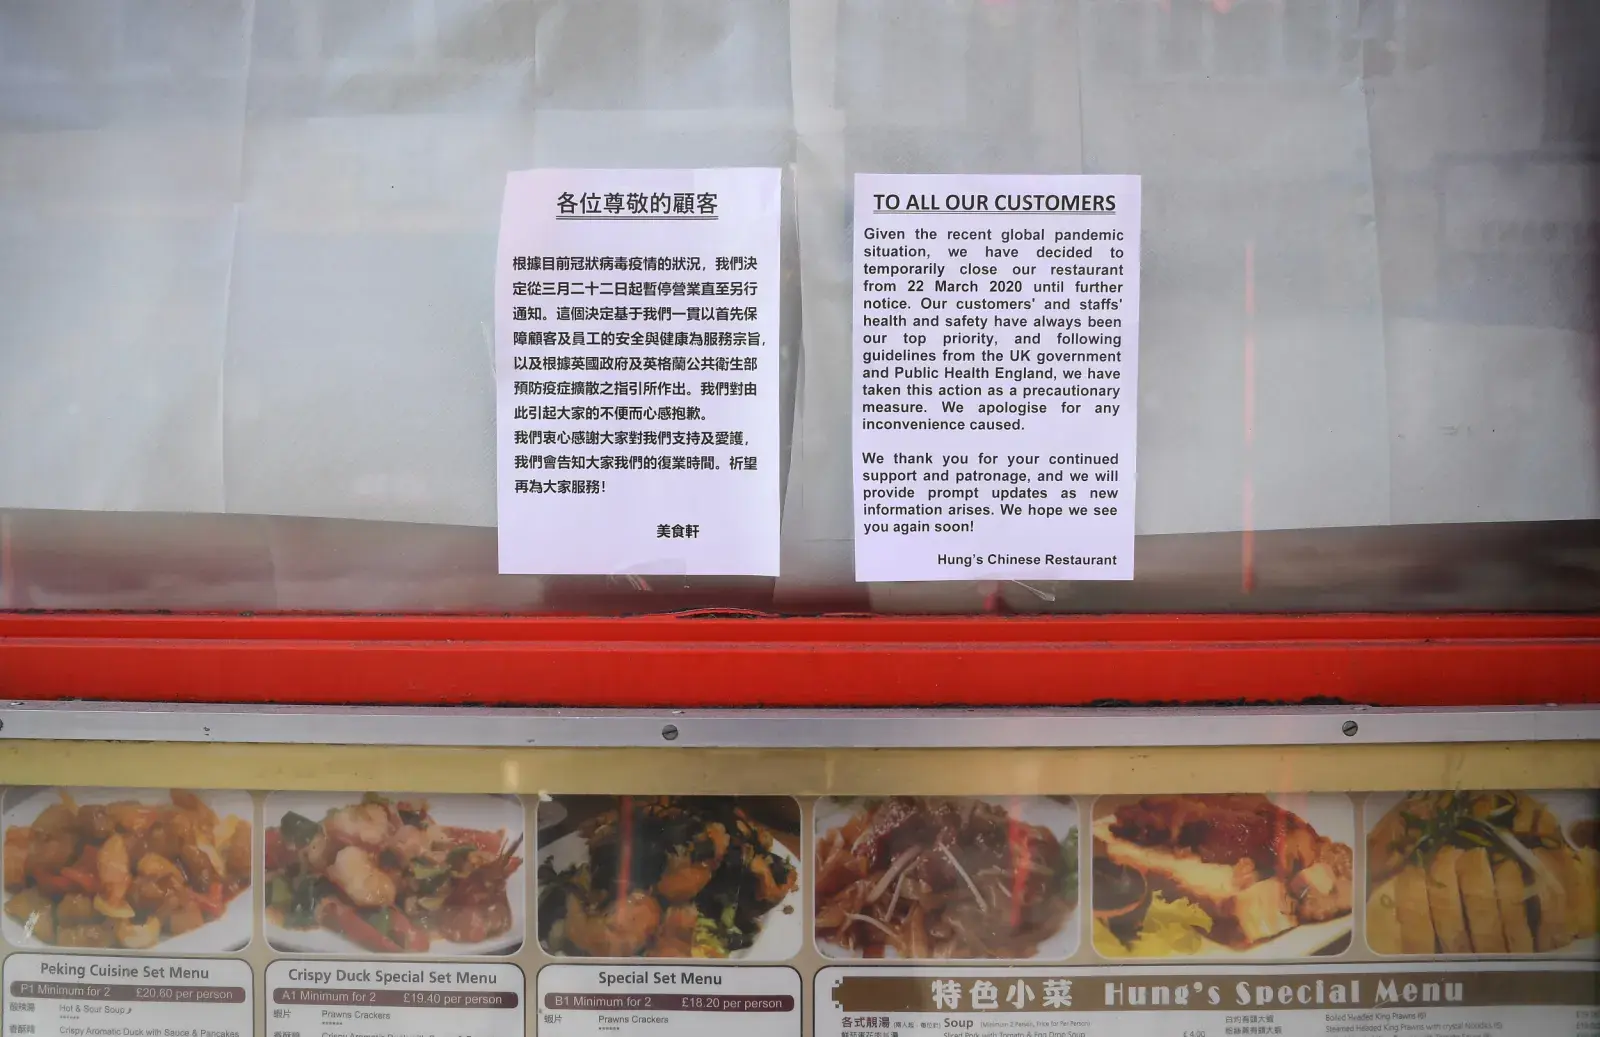 各位尊敬的顧客
根據目前冠狀病毒疫情的狀況，我們決
定從三月二十二日起暫停營業直至另行
通知。這個決定基于我們一貫以首先保
障顧客及員工的安全與健康為服務宗旨，
以及根據英國政府及英格蘭公共衛生部
預防疫症擴散之指引所作出。我們對由
此引起大家的不便而心感抱歉。
我們衷心感謝大家對我們支持及愛護，
我們會告知大家我們的復業時間。祈望
再為大家服務！
美食軒
TO ALL OUR CUSTOMERS
Given the recent global pandemic
situation, we have decided to
temporarily close our restaurant
from 22 March 2020 until further
notice. Our customers' and staffs'
health and safety have always been
our top priority, and following
guidelines from the UK government
and Public Health England, we have
taken this action as a precautionary
measure. We apologise for any
inconvenience caused.
We thank you for your continued
support and patronage, and we will
provide prompt updates as new
information arises. We hope we see
you again soon!
Hung's Chinese Restaurant
Peking Cuisine Set Menu
P1 Minimum for 2 £20.60 per person
酸辣湯 Hot & Sour Soup
******
香酥鴨 Crispy Aromatic Duck with Sauce & Pancakes
Crispy Duck Special Set Menu
A1 Minimum for 2 £19.40 per person
蝦片 Prawns Crackers
******
香酥鴨
Special Set Menu
B1 Minimum for 2 £18.20 per person
蝦片 Prawns Crackers
******
特色小菜 Hung's Special Menu
各式靚湯 Soup (Minimum 2 Person, Price for Per Person)
Sliced Pork with Tomato & Egg Drop Soup £4.00
白灼有頭大蝦 Boiled Headed King Prawns
Steamed Headed King Prawns with crystal Noodles